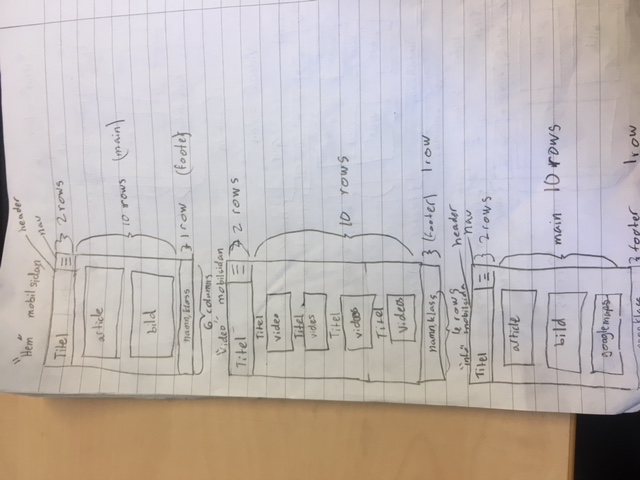 "Hem" mobilsidan
header
nav
Titel
2 rows
article
10 rows (main)
bild
namn, klass
1 row (footer)
6 columns
"Video" mobilsidan
Titel
2 rows
Titel
video
Titel
video
Titel
videos
Titel
Videos
10 rows
namn, klass
(footer) 1row
6 rows
"info" mobilsida
header
nav
Titel
2 rows
article
bild
main 10 rows
googlemaps
footer 1row